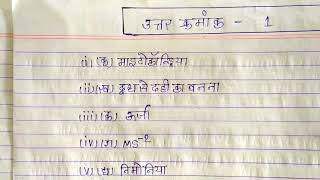 उत्तर क्रमांक - 1
(i) (क) माइटोकॉन्ड्रिया
(ii) (ख) दूध से दही का बनना
(iii) (क) ऊर्जा
(iv) (ग) MS⁻²
(v) (ख) निमोनिया